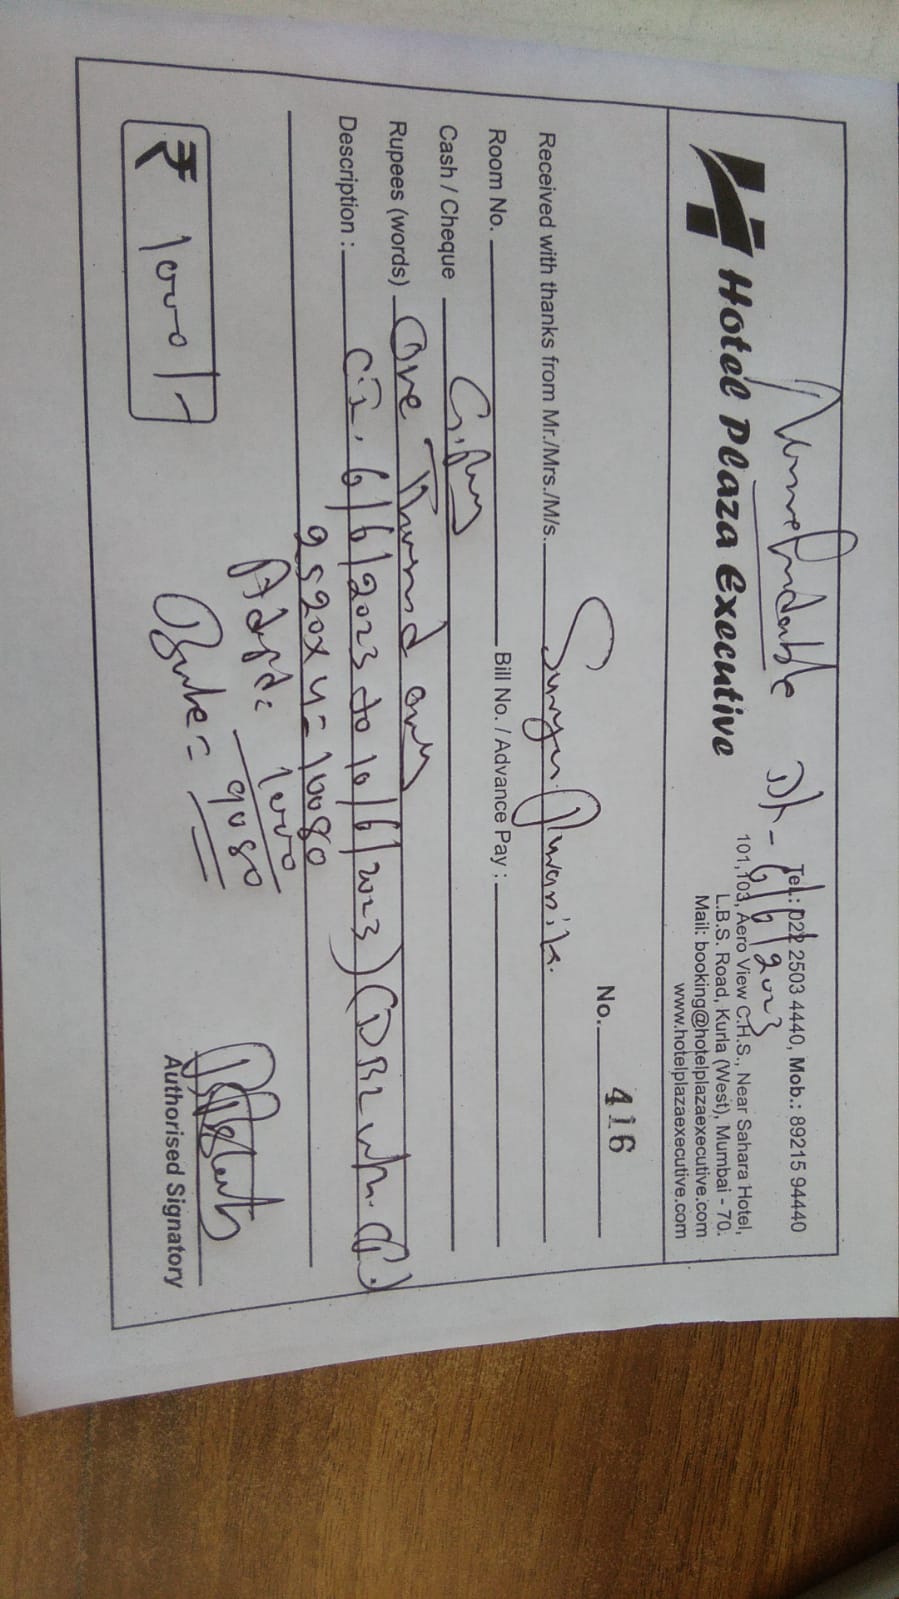 Nonrefundable Dt- 6/6/2023
Hotel Plaza Executive
Tel.: 022 2503 4440, Mob.: 89215 94440
101,103, Aero View C.H.S., Near Sahara Hotel,
L.B.S. Road, Kurla (West), Mumbai - 70.
Mail: booking@hotelplazaexecutive.com
www.hotelplazaexecutive.com
No. 416
Received with thanks from Mr./Mrs./M/s.
Room No. Bill No. / Advance Pay :
Cash / Cheque
Rupees (words) One Thousand only
Description : 6/6/2023 to 10/6/2023)
2520x4=10080
1000
9080
₹ 1000/-
Authorised Signatory